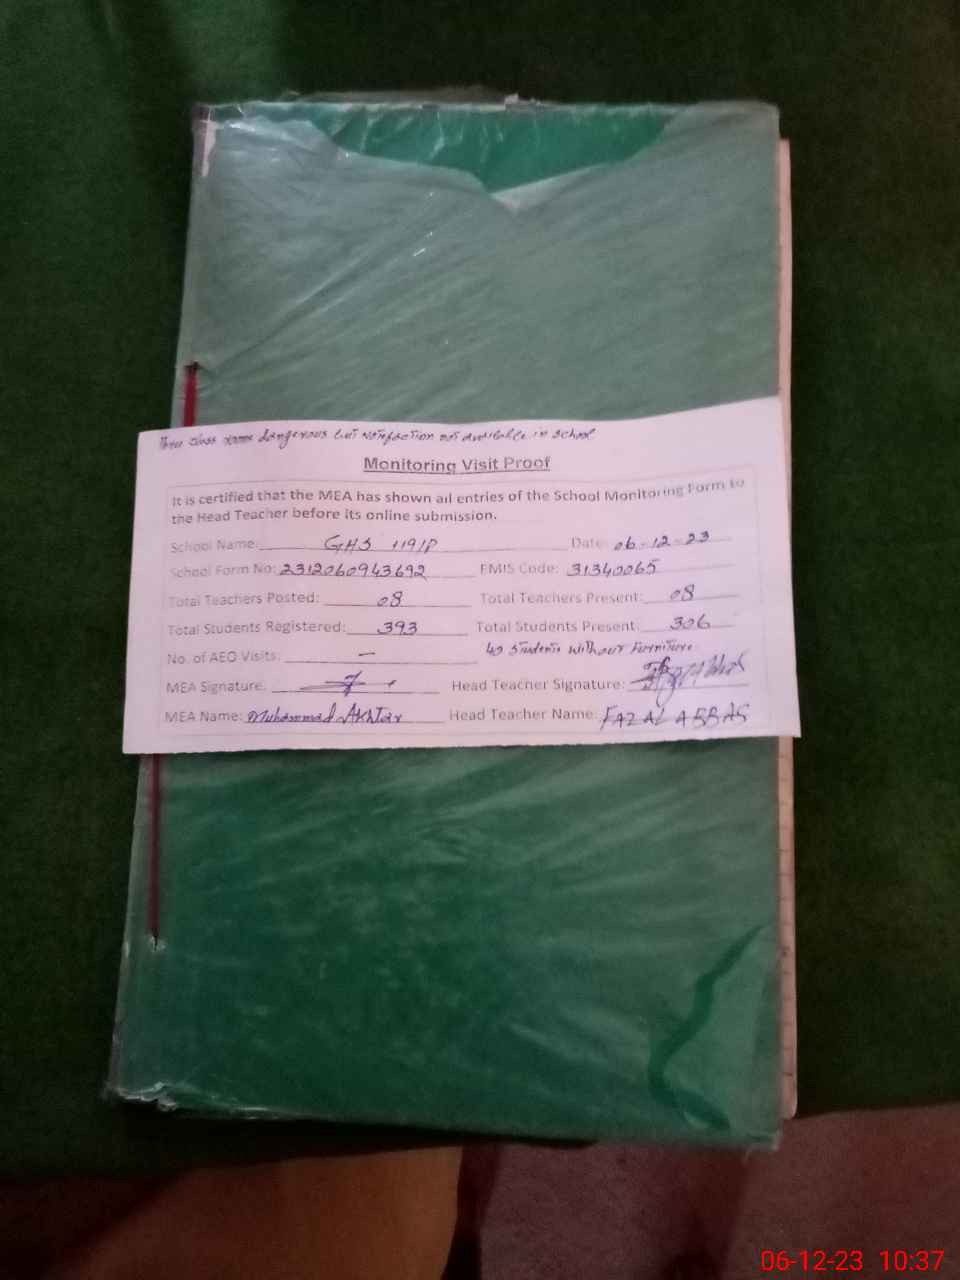 Three class rooms dangerous but notification not available in school
Monitoring Visit Proof
It is certified that the MEA has shown all entries of the School Monitoring Form to
the Head Teacher before its online submission.
School Name: GHS 119/P Date: 06-12-23
School Form No: 2312060943692 EMIS Code: 31340065
Total Teachers Posted: 08 Total Teachers Present: 08
Total Students Registered: 393 Total Students Present: 306
No. of AEO Visits: — 40 Students without Furniture
MEA Signature: Head Teacher Signature:
MEA Name: Muhammad Akhtar Head Teacher Name: FAZAL ABBAS
06-12-23 10:37